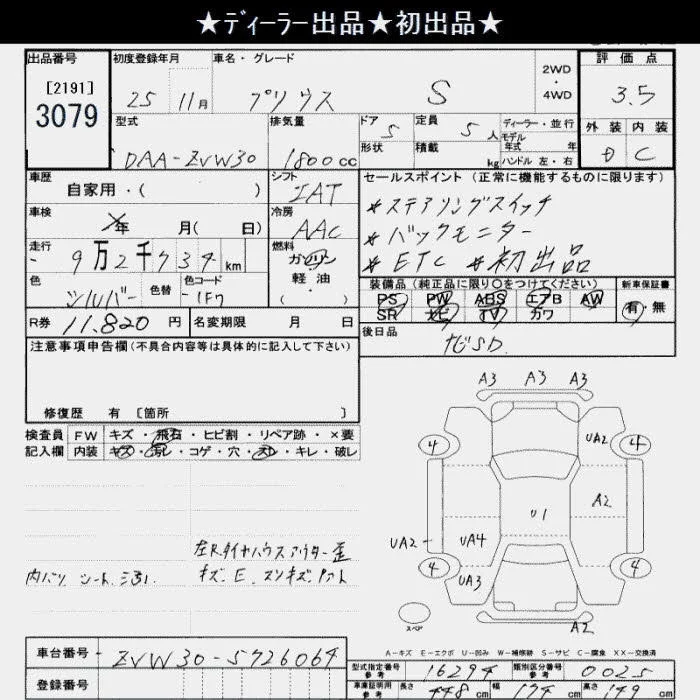 ★ディーラー出品★初出品★
出品番号 初度登録年月 車名・グレード 2WD・4WD 評価点
[2191]
3079
25 11月 プリウス S 3.5
外装 内装
D C
型式 排気量 ドア 定員 ディーラー・並行
5 5人 モデル年式 年
DAA-ZVW30 1800cc 形状 積載 kg ハンドル 左・右
車歴 自家用・( ) シフト セールスポイント (正常に機能するものに限ります)
IAT
*ステアリングスイッチ
車検 年 月( 日) 冷房
AAC
*バックモニター
走行 9万2千734km 燃料 ガソリン
*ETC *初出品
軽油・( )
色 色替 色コード 装備品(純正品に限り○をつけてください) 新車保証書
シルバー 1F7 PS PW ABS エアB AW 有・無
SR ナビ TV カワ
R券 11,820円 名変期限 月 日 後日品
ナビSD
注意事項申告欄(不具合内容等は具体的に記入して下さい)
修復歴 有 [箇所 ]
検査員 FW キズ・飛石・ヒビ割・リペア跡・×要
記入欄 内装 キズ・汚レ・コゲ・穴・スレ・キレ・破レ
A3 A3 A3
4 UA2 4
A2
U1
UA2 UA4
4 UA3 4
スペア
A2
左Rタイヤハウスアウター歪
キズ、E、スリキズ
内バリ シート
A-キズ E-エクボ U-凹み W-補修跡 S-サビ C-腐食 XX-交換済
車台番号 ZVW30-5726064
登録番号
型式指定番号 参考 16294 類別区分番号 参考 0025
車庫証明用 参考 長さ 448cm 幅 174cm 高さ 149cm